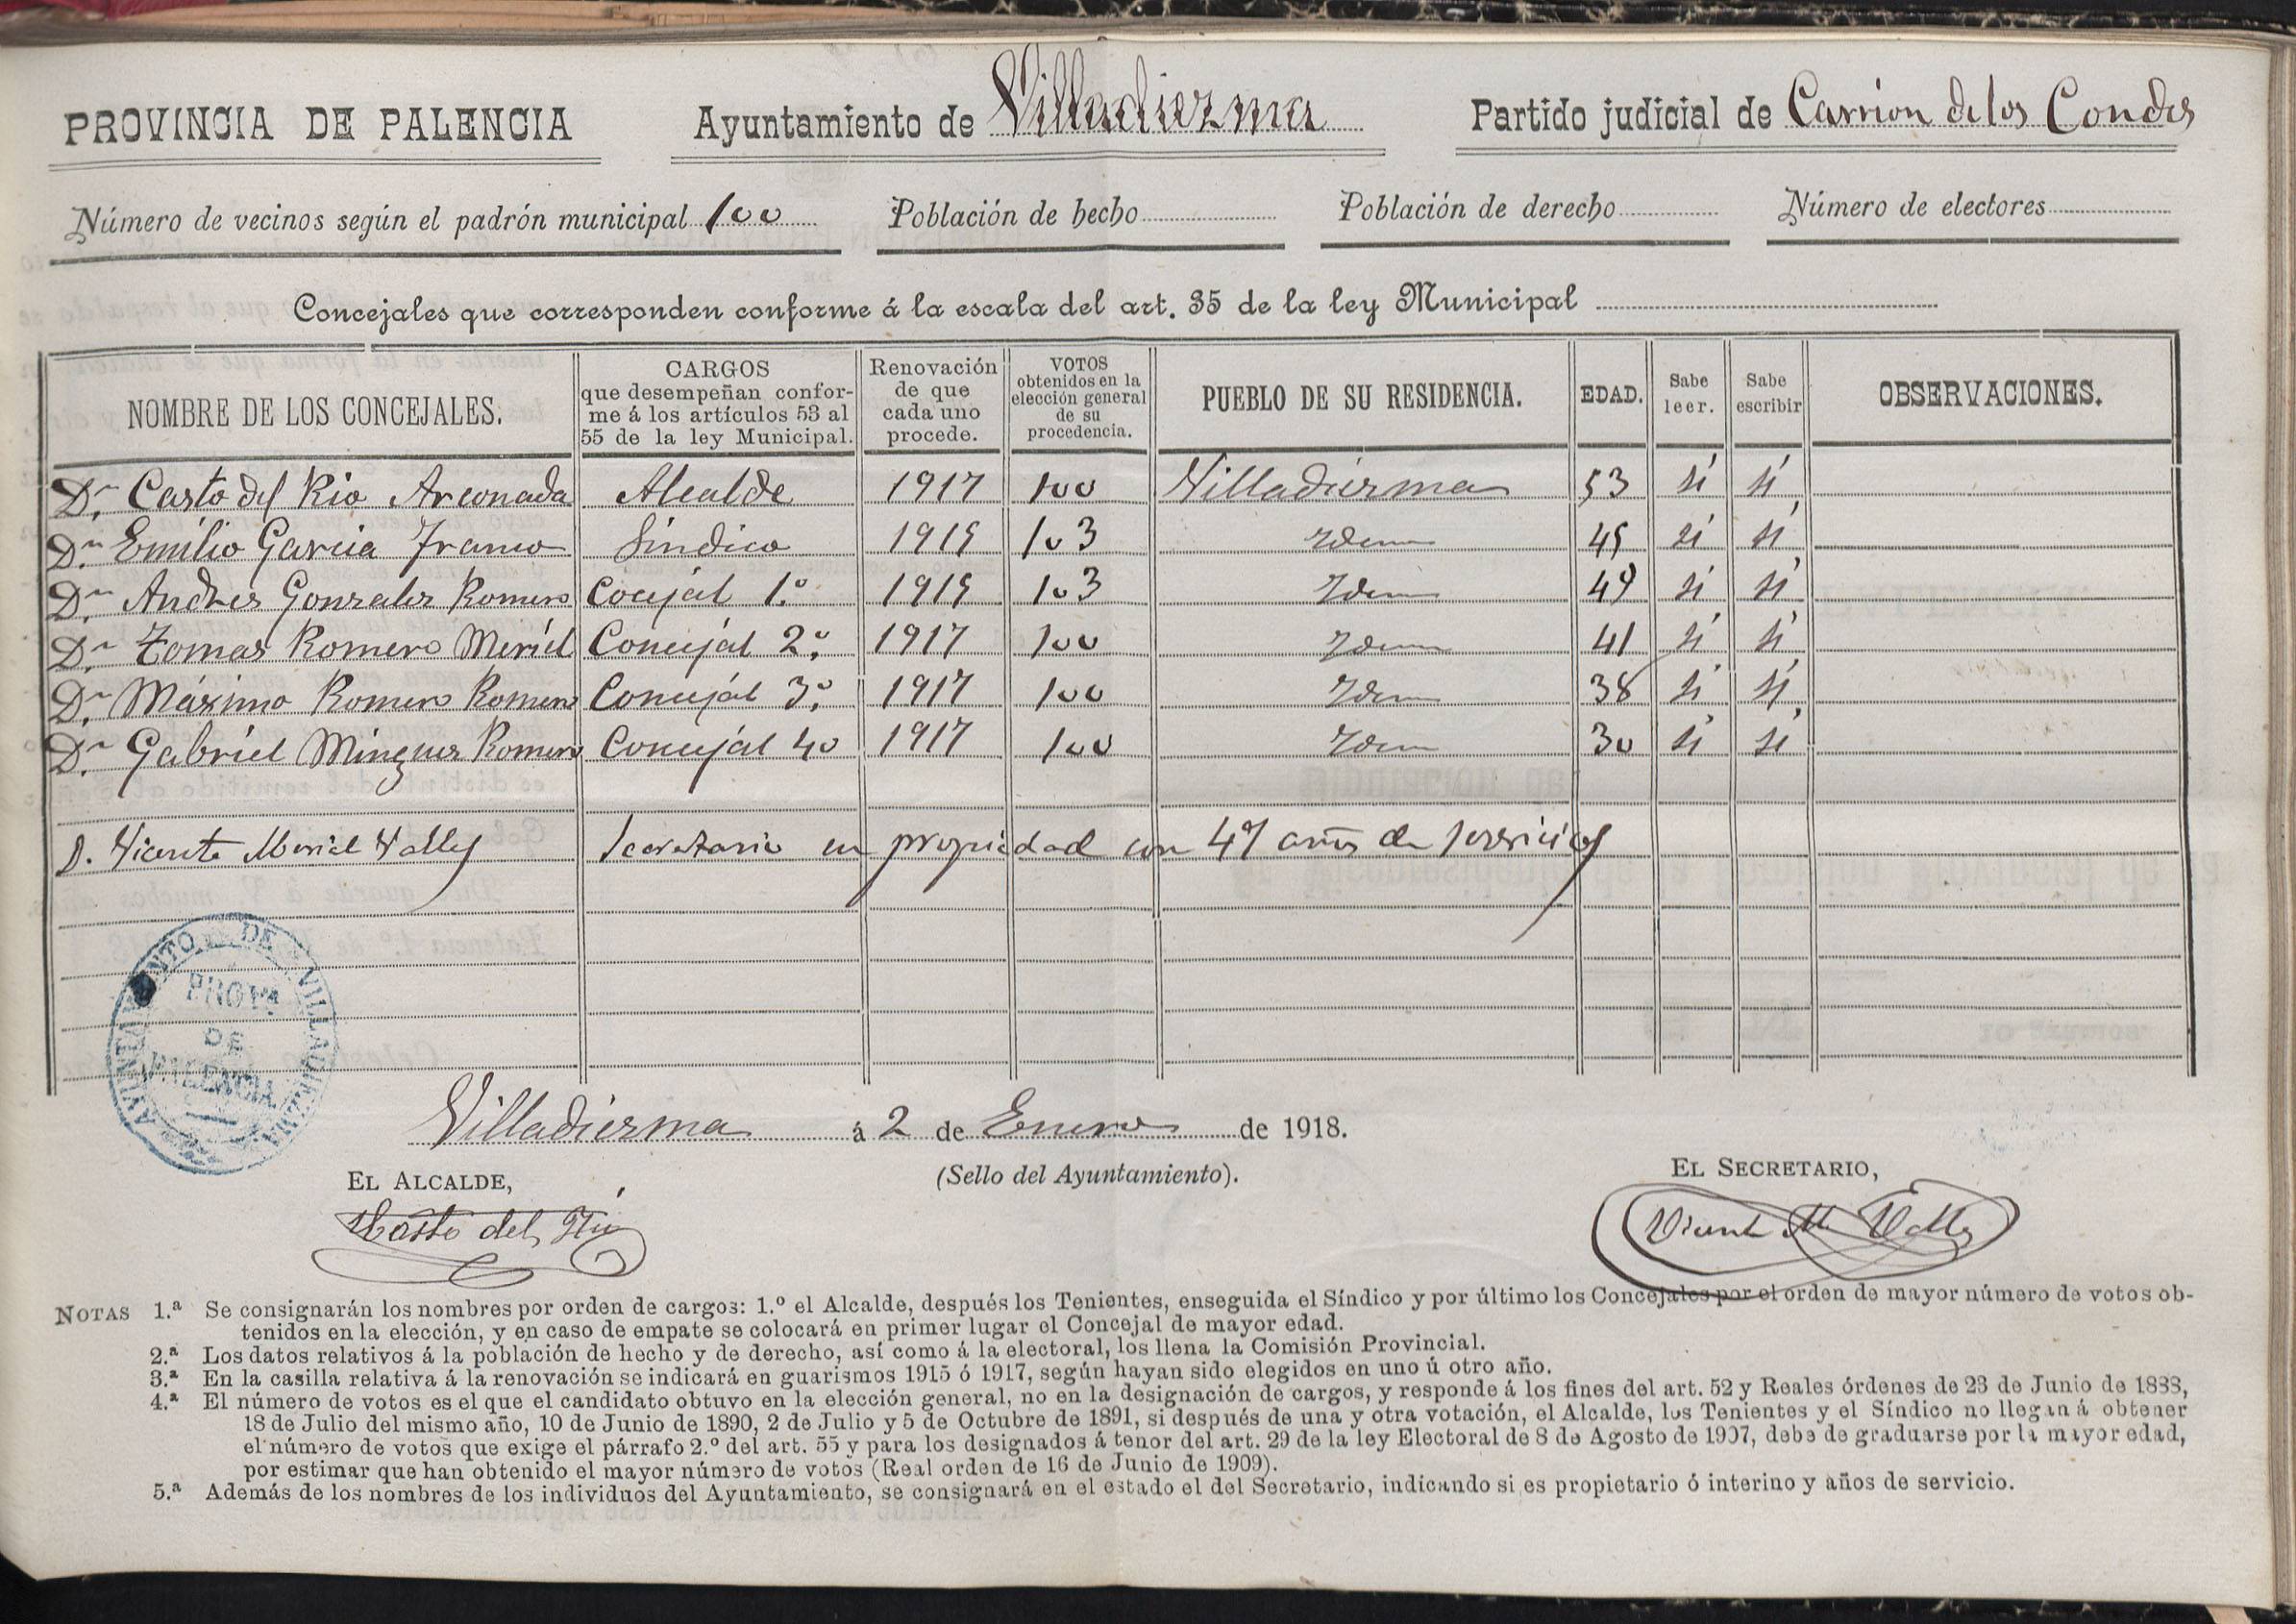 PROVINCIA DE PALENCIA Ayuntamiento de Villadiezma Partido judicial de Carrion de los Condes
Número de vecinos según el padrón municipal 100 Población de hecho Población de derecho Número de electores
Concejales que corresponden conforme á la escala del art. 35 de la ley Municipal
NOMBRE DE LOS CONCEJALES. CARGOS que desempeñan conforme á los artículos 53 al 55 de la ley Municipal. Renovación de que cada uno procede. VOTOS obtenidos en la elección general de su procedencia. PUEBLO DE SU RESIDENCIA. EDAD. Sabe leer. Sabe escribir OBSERVACIONES.
Dn. Casto del Rio Arconada Alcalde 1917 100 Villadiezma 53 si si
Dn. Emilio Garcia Franco Sindico 1915 103 Idem 45 si si
Dn. Andres Gonzalez Romero Cocejal 1.º 1915 103 Idem 49 si si
Dn. Tomas Romero Meriel Concejal 2.º 1917 100 Idem 41 si si
Dn. Máximo Romero Romero Concejal 3.º 1917 100 Idem 38 si si
Dn. Gabriel Minguez Romero Concejal 4º 1917 100 Idem 30 si si
D. Vicente Meriel Valles Secretario en propiedad con años de servicios
AYUNTAMIENTO DE VILLADIEZMA
PROVA.
DE
PALENCIA
Villadiezma á 2 de Enero de 1918.
EL ALCALDE, (Sello del Ayuntamiento). EL SECRETARIO,
Casto del Rio Vicente M Valles
NOTAS 1.ª Se consignarán los nombres por orden de cargos: 1.º el Alcalde, después los Tenientes, enseguida el Síndico y por último los Concejales por el orden de mayor número de votos ob-
tenidos en la elección, y en caso de empate se colocará en primer lugar el Concejal de mayor edad.
2.ª Los datos relativos á la población de hecho y de derecho, así como á la electoral, los llena la Comisión Provincial.
3.ª En la casilla relativa á la renovación se indicará en guarismos 1915 ó 1917, según hayan sido elegidos en uno ú otro año.
4.ª El número de votos es el que el candidato obtuvo en la elección general, no en la designación de cargos, y responde á los fines del art. 52 y Reales órdenes de 23 de Junio de 1888,
18 de Julio del mismo año, 10 de Junio de 1890, 2 de Julio y 5 de Octubre de 1891, si después de una y otra votación, el Alcalde, los Tenientes y el Síndico no llegan á obtener
el número de votos que exige el párrafo 2.º del art. 55 y para los designados á tenor del art. 29 de la ley Electoral de 8 de Agosto de 1907, debe de graduarse por la mayor edad,
por estimar que han obtenido el mayor número de votos (Real orden de 16 de Junio de 1909).
5.ª Además de los nombres de los individuos del Ayuntamiento, se consignará en el estado el del Secretario, indicando si es propietario ó interino y años de servicio.